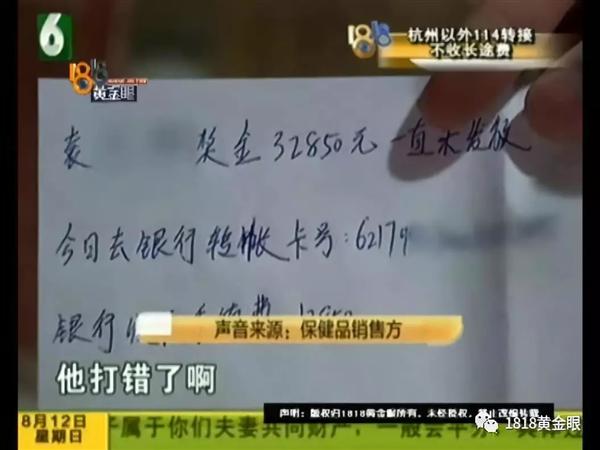 6
1818
杭州以外114转接
不收长途费
1818
黄金眼
袁 奖金32850元一直未发放
今日去银行转帐卡号:62179
银行 手续费
声音来源：保健品销售方
他打错了啊
声明：版权归1818黄金眼所有，未经授权，禁止改编转载
8月12日
星期日
属于你们夫妻共同财产，一般会平分。具体还
1818黄金眼